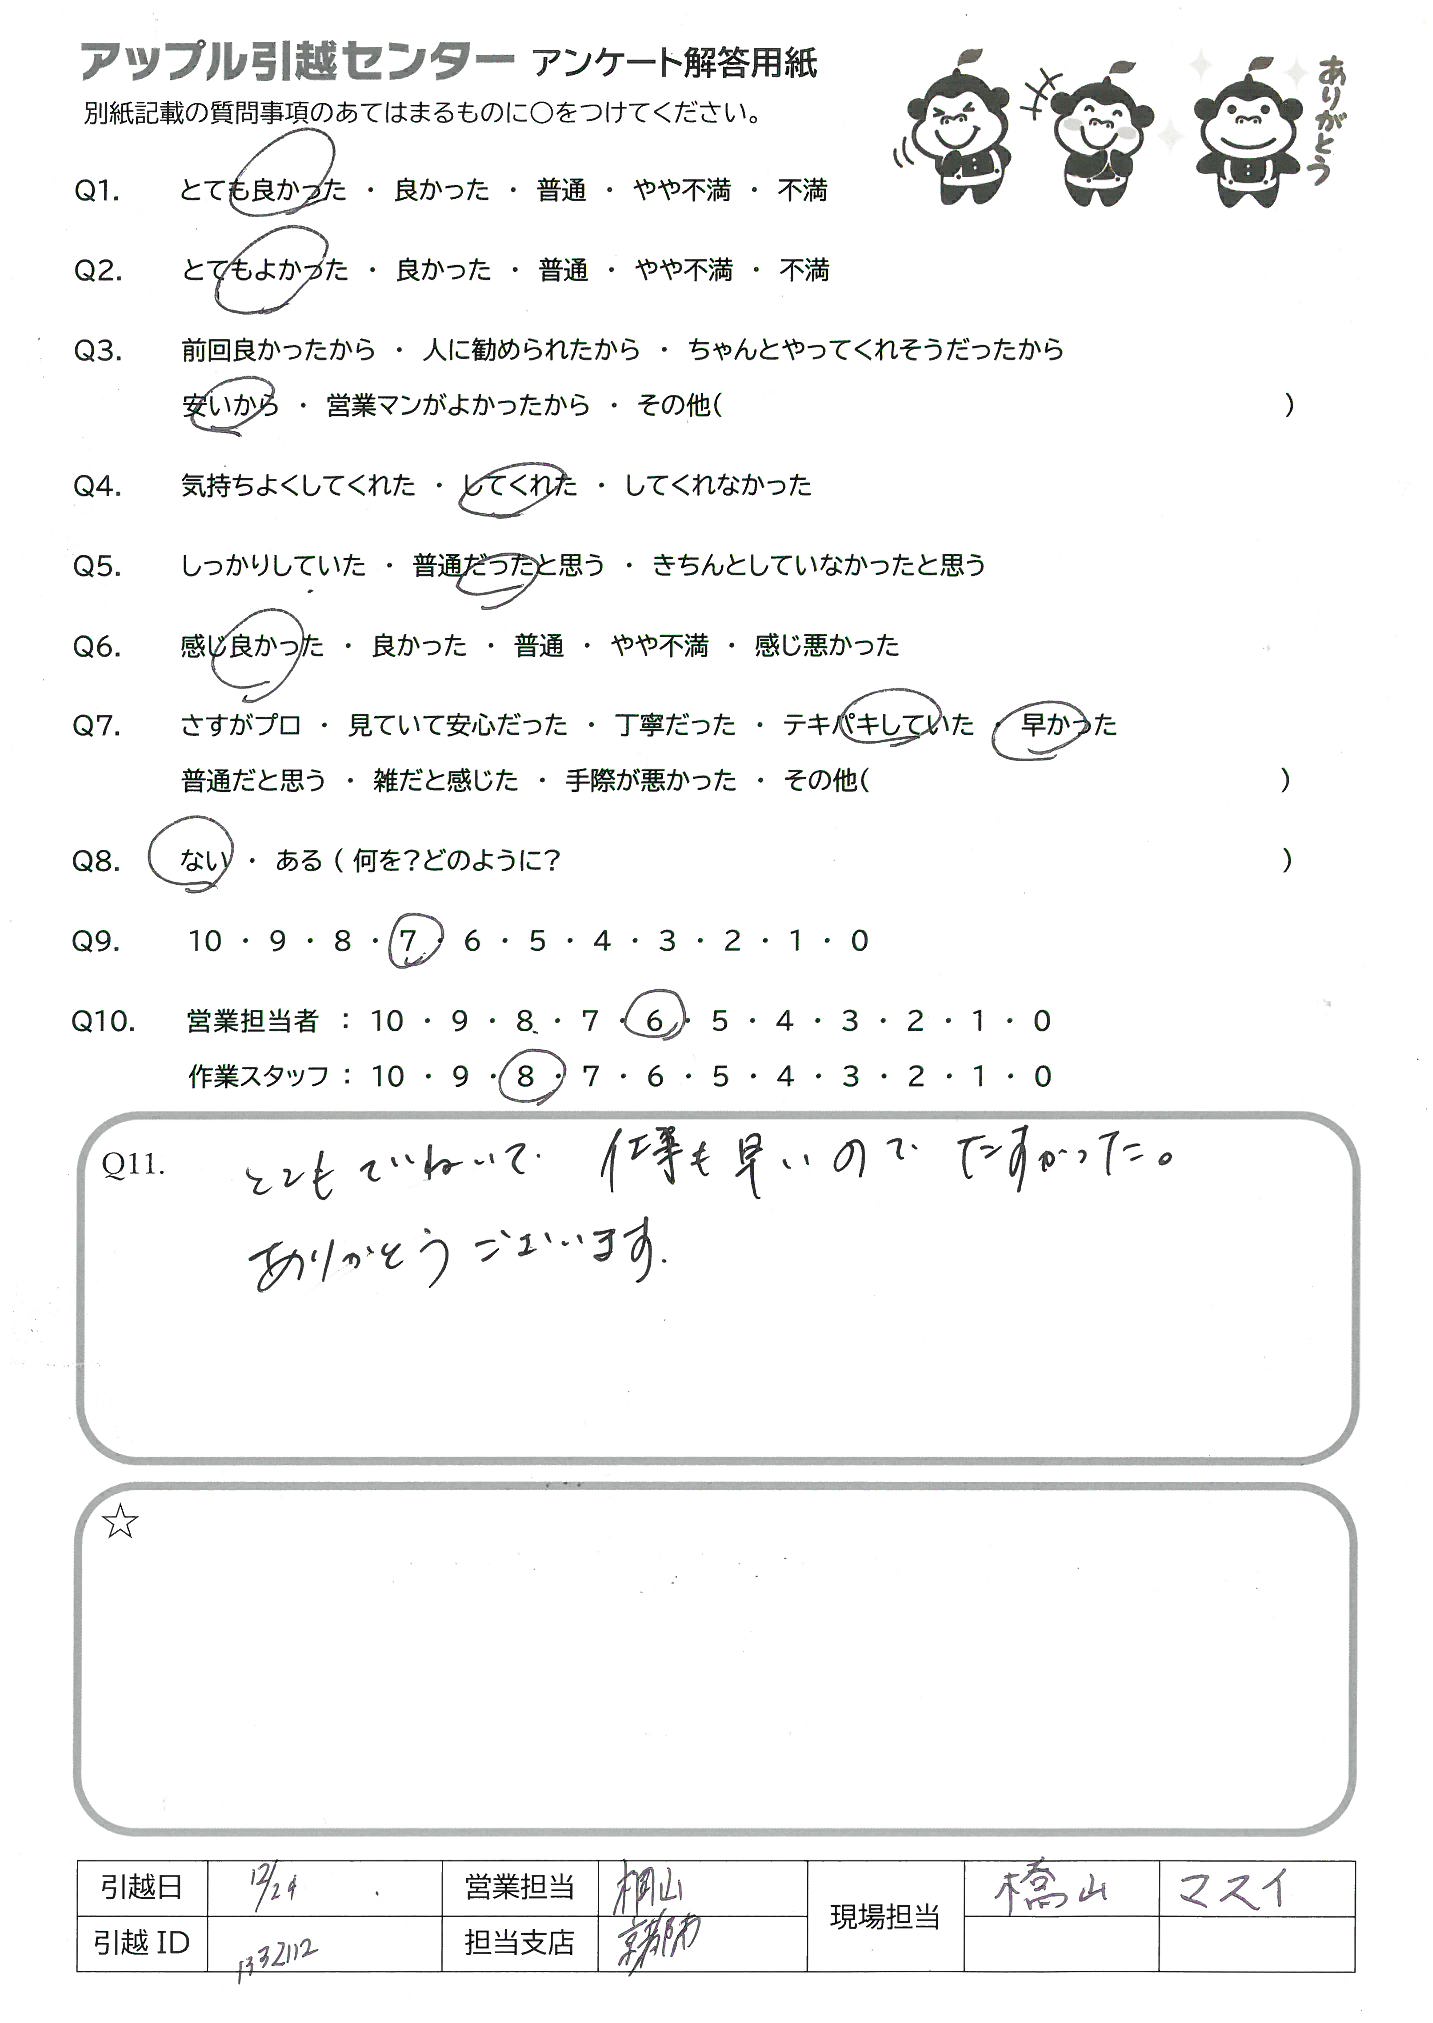 アップル引越センター アンケート解答用紙
別紙記載の質問事項のあてはまるものに○をつけてください。
ありがとう
Q1. とても良かった ・ 良かった ・ 普通 ・ やや不満 ・ 不満
Q2. とてもよかった ・ 良かった ・ 普通 ・ やや不満 ・ 不満
Q3. 前回良かったから ・ 人に勧められたから ・ ちゃんとやってくれそうだったから
安いから ・ 営業マンがよかったから ・ その他( )
Q4. 気持ちよくしてくれた ・ してくれた ・ してくれなかった
Q5. しっかりしていた ・ 普通だったと思う ・ きちんとしていなかったと思う
Q6. 感じ良かった ・ 良かった ・ 普通 ・ やや不満 ・ 感じ悪かった
Q7. さすがプロ ・ 見ていて安心だった ・ 丁寧だった ・ テキパキしていた ・ 早かった
普通だと思う ・ 雑だと感じた ・ 手際が悪かった ・ その他( )
Q8. ない ・ ある ( 何を?どのように? )
Q9. 10 ・ 9 ・ 8 ・ 7 ・ 6 ・ 5 ・ 4 ・ 3 ・ 2 ・ 1 ・ 0
Q10. 営業担当者 : 10 ・ 9 ・ 8 ・ 7 ・ 6 ・ 5 ・ 4 ・ 3 ・ 2 ・ 1 ・ 0
作業スタッフ : 10 ・ 9 ・ 8 ・ 7 ・ 6 ・ 5 ・ 4 ・ 3 ・ 2 ・ 1 ・ 0
Q11. とてもていねいで 仕事も早いので たすかった。
ありがとうございます.
☆
引越日 12/29 営業担当 桐山 現場担当 橋山 マスイ
引越ID 1332112 担当支店 京都南